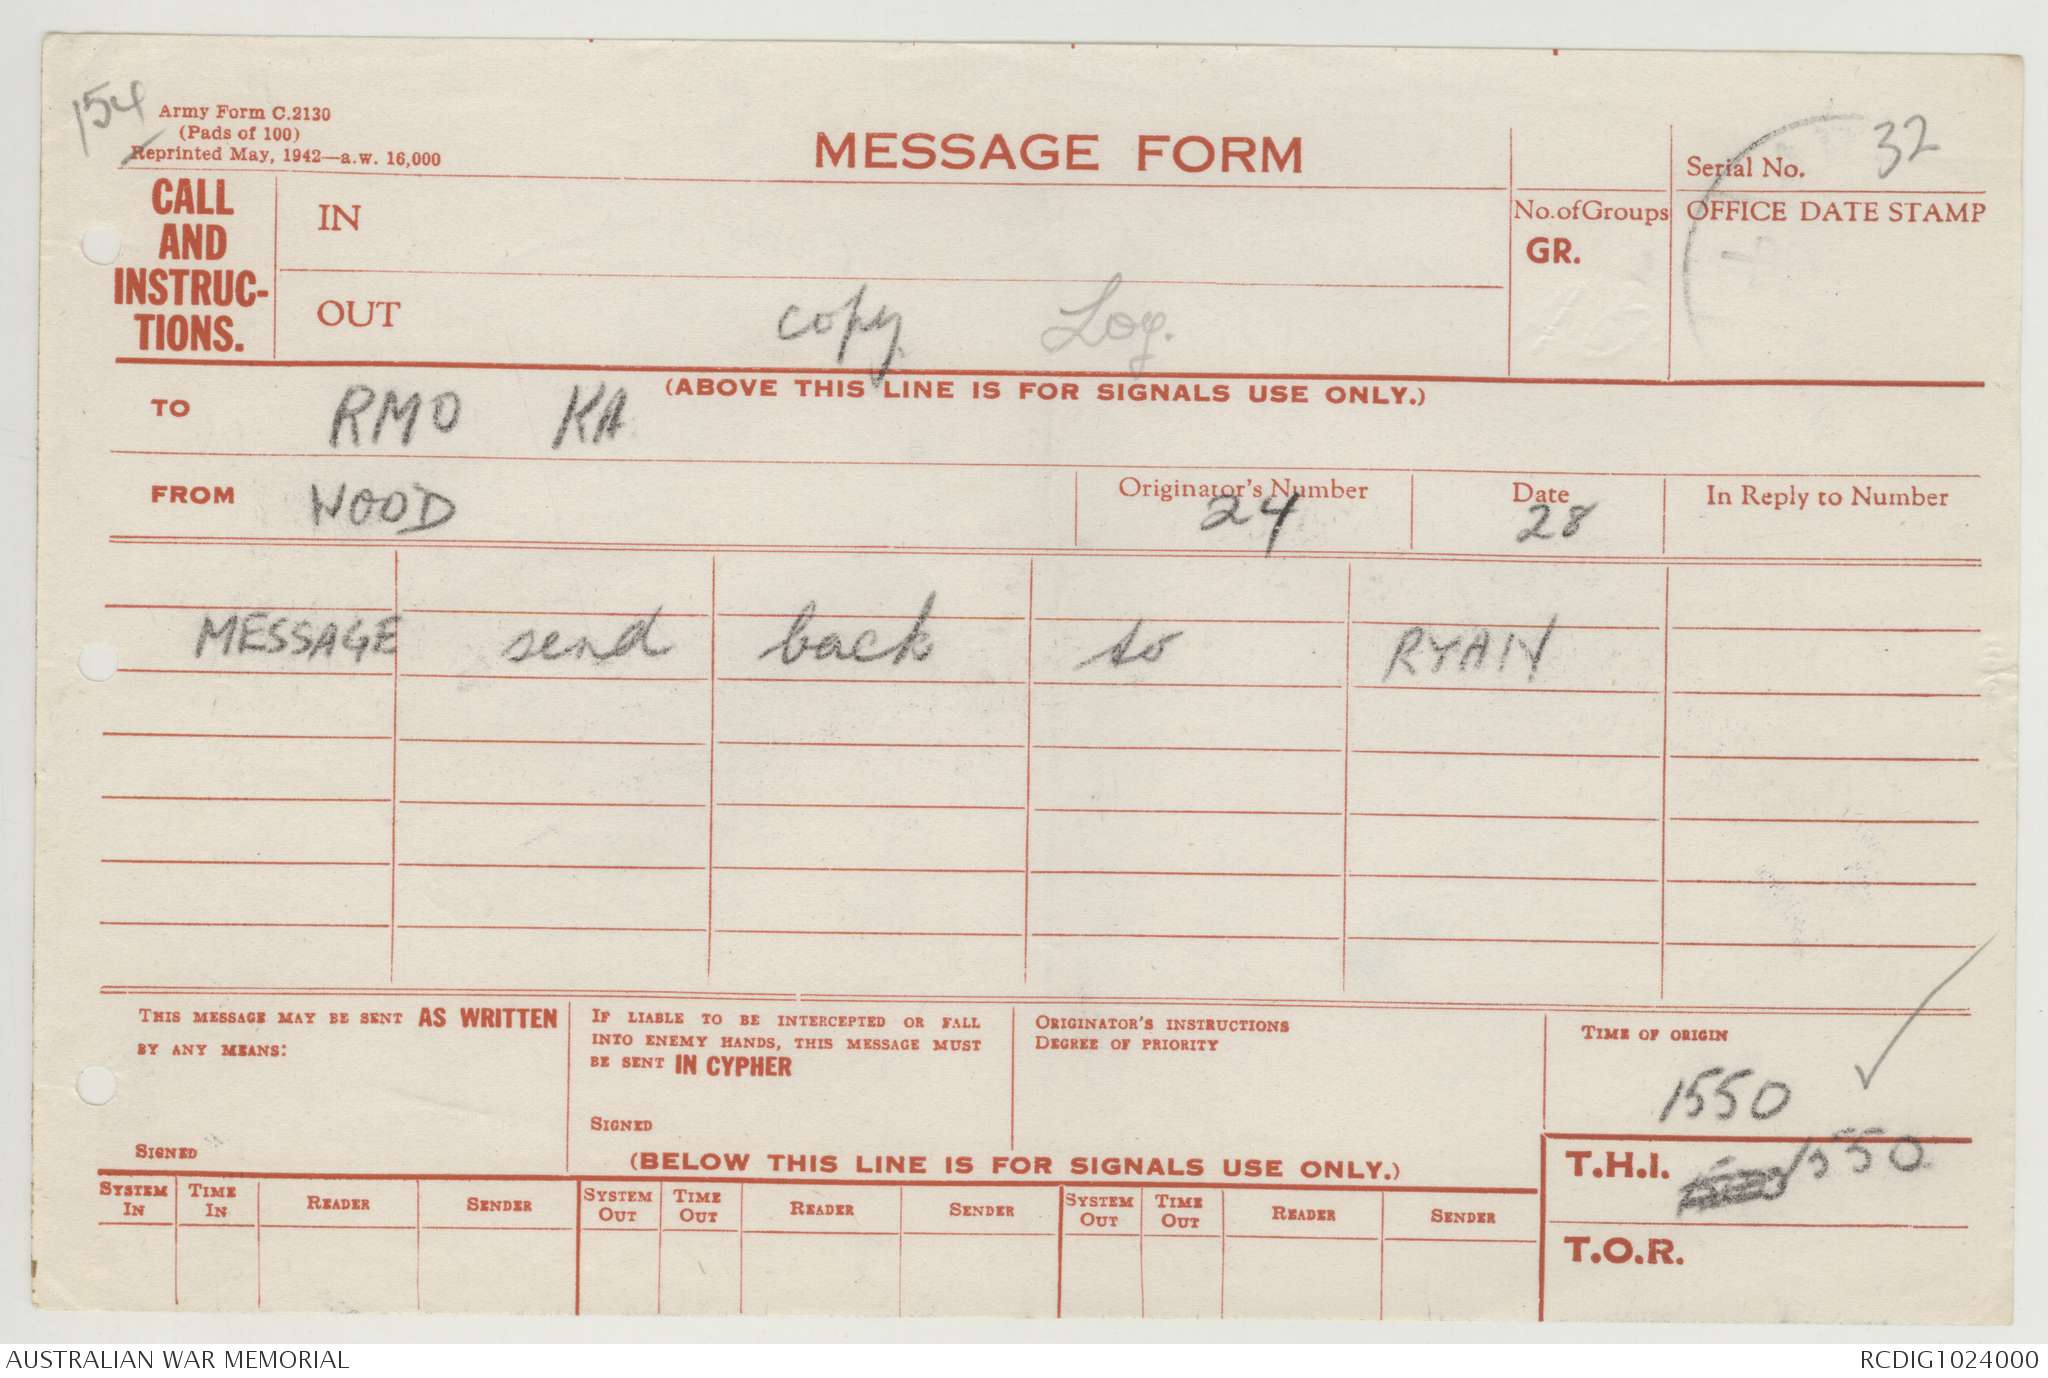 154
Army Form C.2130
(Pads of 100)
Reprinted May, 1942—a.w. 16,000
MESSAGE FORM
Serial No. 32
CALL AND INSTRUC- TIONS.
IN
No. of Groups
GR.
OFFICE DATE STAMP
OUT copy Log.
(ABOVE THIS LINE IS FOR SIGNALS USE ONLY.)
TO RMO KA
FROM WOOD
Originator's Number
24
Date
28
In Reply to Number
MESSAGE send back to RYAN
THIS MESSAGE MAY BE SENT AS WRITTEN
BY ANY MEANS:
SIGNED
IF LIABLE TO BE INTERCEPTED OR FALL
INTO ENEMY HANDS, THIS MESSAGE MUST
BE SENT IN CYPHER
SIGNED
ORIGINATOR'S INSTRUCTIONS
DEGREE OF PRIORITY
TIME OF ORIGIN
1550
(BELOW THIS LINE IS FOR SIGNALS USE ONLY.)
T.H.I. 1550
T.O.R.
SYSTEM IN TIME IN READER SENDER SYSTEM OUT TIME OUT READER SENDER SYSTEM OUT TIME OUT READER SENDER
AUSTRALIAN WAR MEMORIAL
RCDIG1024000